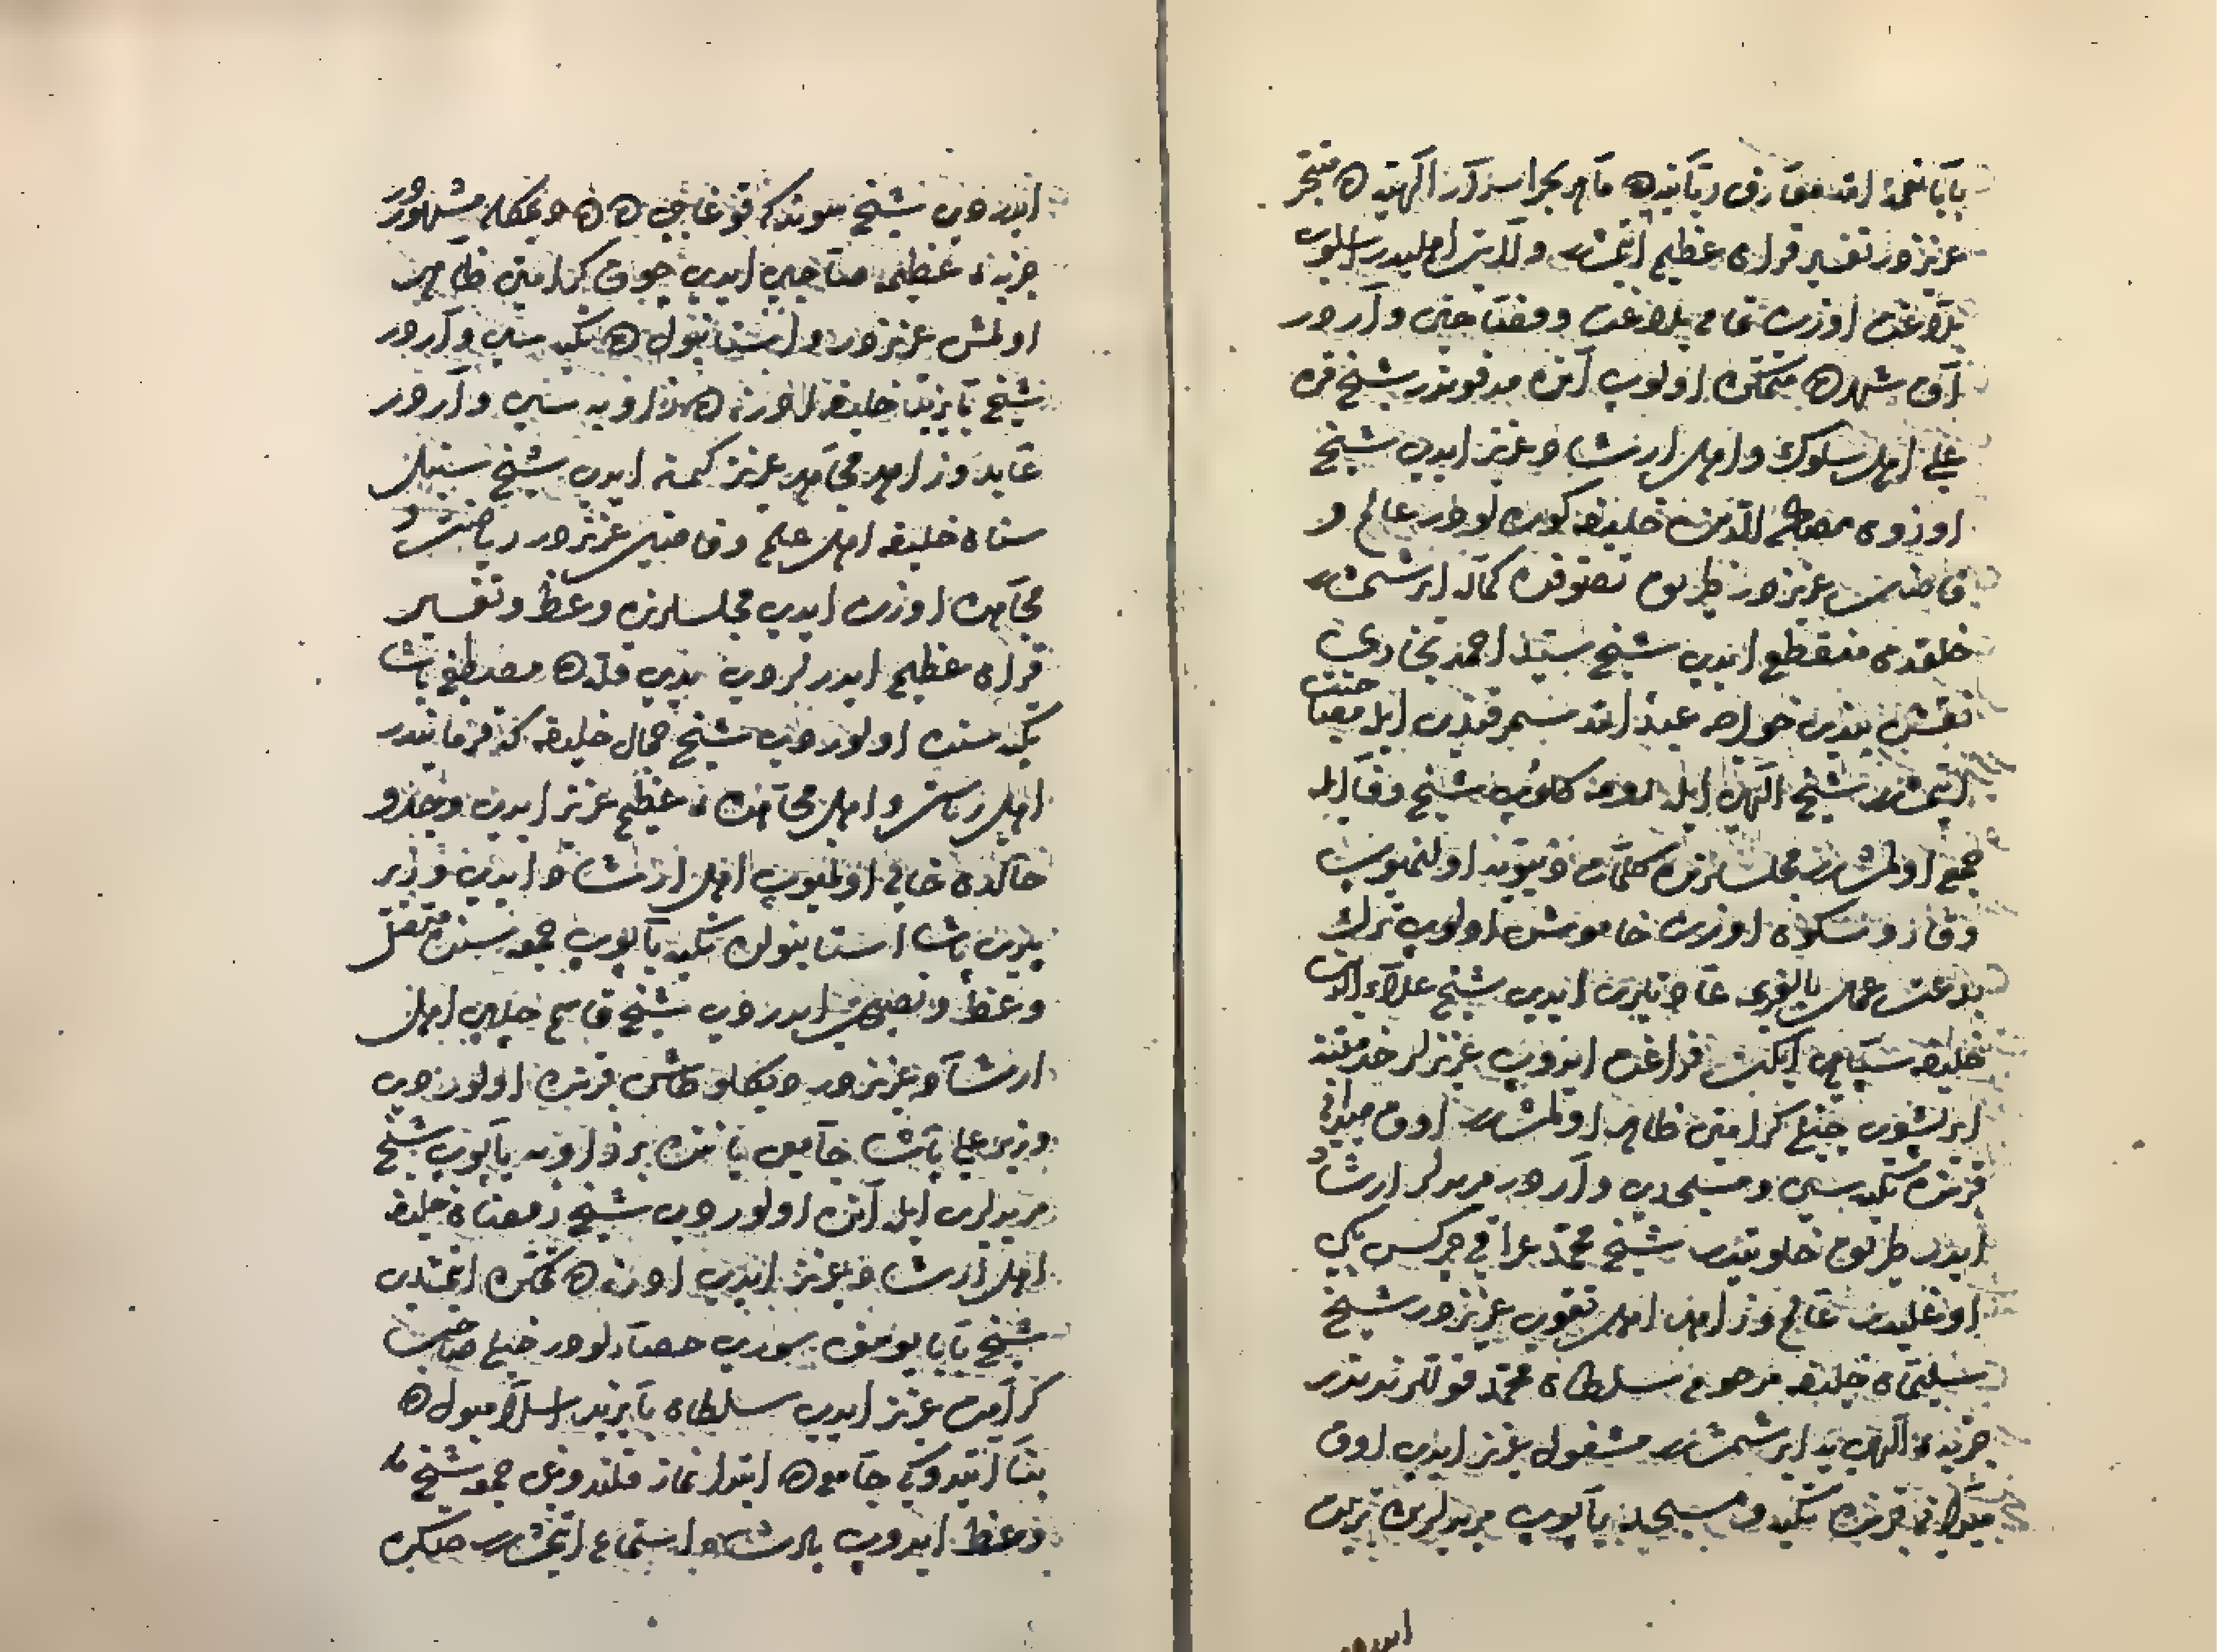 بابا نعمة الله معارف ربانیده ماهر بحر اسرار الهیده متبحر
عزیزدر تفسیر قران عظیم اتمشدر ولایت اهلیدر اسلوب
بلاغت اوزره تمام بلاغت و فصاحتی واردر
آق شهرده متمکن اولوب آنده مدفوندر شیخ قره
علی اهل سلوک و اهل ارشاد عزیز ایدی شیخ
اوزون مصلح الدین خلیفه لودر عالم و
فاضل عزیزدر طریق تصوفده کماله ایرشمشدر
خلقدن منقطع ایدی شیخ سید احمد بخاری
نقشبندی خواجه عبد الله سمرقندی ایله مصاحبت
اتمشدر شیخ الهی ایله رومه کلوب شیخ وفا ایله
جمع اولمشدر مجلسلرنده کلمات دنیویه اولنمیوب
وقار و سکون اوزره خاموش اولوب ترک
بدعت عمل بالتقوی عادتلری ایدی شیخ علاء الدین
خلیفه سپاهی ایکن فراغت ایدوب عزیزلر خدمتنه
ایرشوب جمیع کرامتی ظاهر اولمشدر اوق میدانی
قربنده تکیه سی و مسجدی واردر مریدلر ارشاد
ایدر طریق خلوتیدر شیخ محمد عراقی چرکس بکی
اوغلیدر عالم و زاهد اهل تقوی عزیزدر شیخ
سلیمان خلیفه مرحوم سلطان محمد قوللرندندر
جذبه الهی یه ایرشمشدر مشغول عزیز ایدی اوق
میدانی قربنده تکیه و مسجد یاپوب مریدلرین تربیت
ایدردی شیخ سوندک قوغاجی ده دیمکله مشهوردر
جذبه عظیمه صاحبی ایدی چوق کرامتی ظاهر
اولمش عزیزدر و استانبولده تکیه سی واردر
شیخ بایزید خلیفه ادرنه ده زاویه سی واردر
عابد و زاهد مجاهد عزیز کمسه ایدی شیخ سنبل
سنان خلیفه اهل علم و فاضل عزیزدر ریاضت و
مجاهده اوزره ایدی مجلسلرنده وعظ و تفسیر
قران عظیم ایدرلردی یدی قلده مصطفی پاشا
تکیه سنده اولوردی شیخ جمال خلیفه قرمانیدر
اهل ریاضت و اهل مجاهده عظیم عزیز ایدی وجد و
حالدن خالی اولمیوب اهل ارشاد ایدی وزیر
پیری پاشا استانبولده تکیه یاپوب جمعه سنده متصل
وعظ و نصیحت ایدردی شیخ قاسم خلیفه اهل
ارشاد عزیزدر دیکلو طاش قربنده اولوردی
وزیر علی پاشا جامعی یاننده بر زاویه یاپوب شیخ
مریدلری ایله آنده اولوردی شیخ رمضان خلیفه
اهل ارشاد عزیز ایدی ادرنه ده تمکن اتمشدی
شیخ بابا یوسف سوری حصارلودر جمیع صاحب
کرامت عزیز ایدی سلطان بایزید اسلامبولده
بنا اتدوکی جامعده ابتدا نماز قلندوغی جمعه شیخ
وعظ ایدوب پادشاه استماع اتمشدر